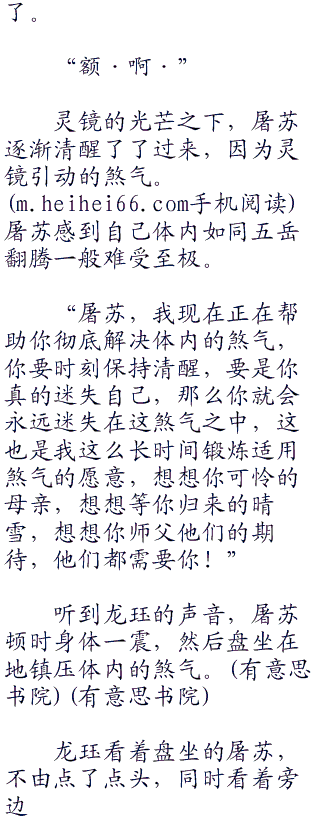 了。
“额·啊·”
灵镜的光芒之下，屠苏
逐渐清醒了了过来，因为灵
镜引动的煞气。
(m.heihei66.com手机阅读)
屠苏感到自己体内如同五岳
翻腾一般难受至极。
“屠苏，我现在正在帮
助你彻底解决体内的煞气，
你要时刻保持清醒，要是你
真的迷失自己，那么你就会
永远迷失在这煞气之中，这
也是我这么长时间锻炼适用
煞气的愿意，想想你可怜的
母亲，想想等你归来的晴
雪，想想你师父他们的期
待，他们都需要你！”
听到龙珏的声音，屠苏
顿时身体一震，然后盘坐在
地镇压体内的煞气。(有意思
书院)(有意思书院)
龙珏看着盘坐的屠苏，
不由点了点头，同时看着旁
边